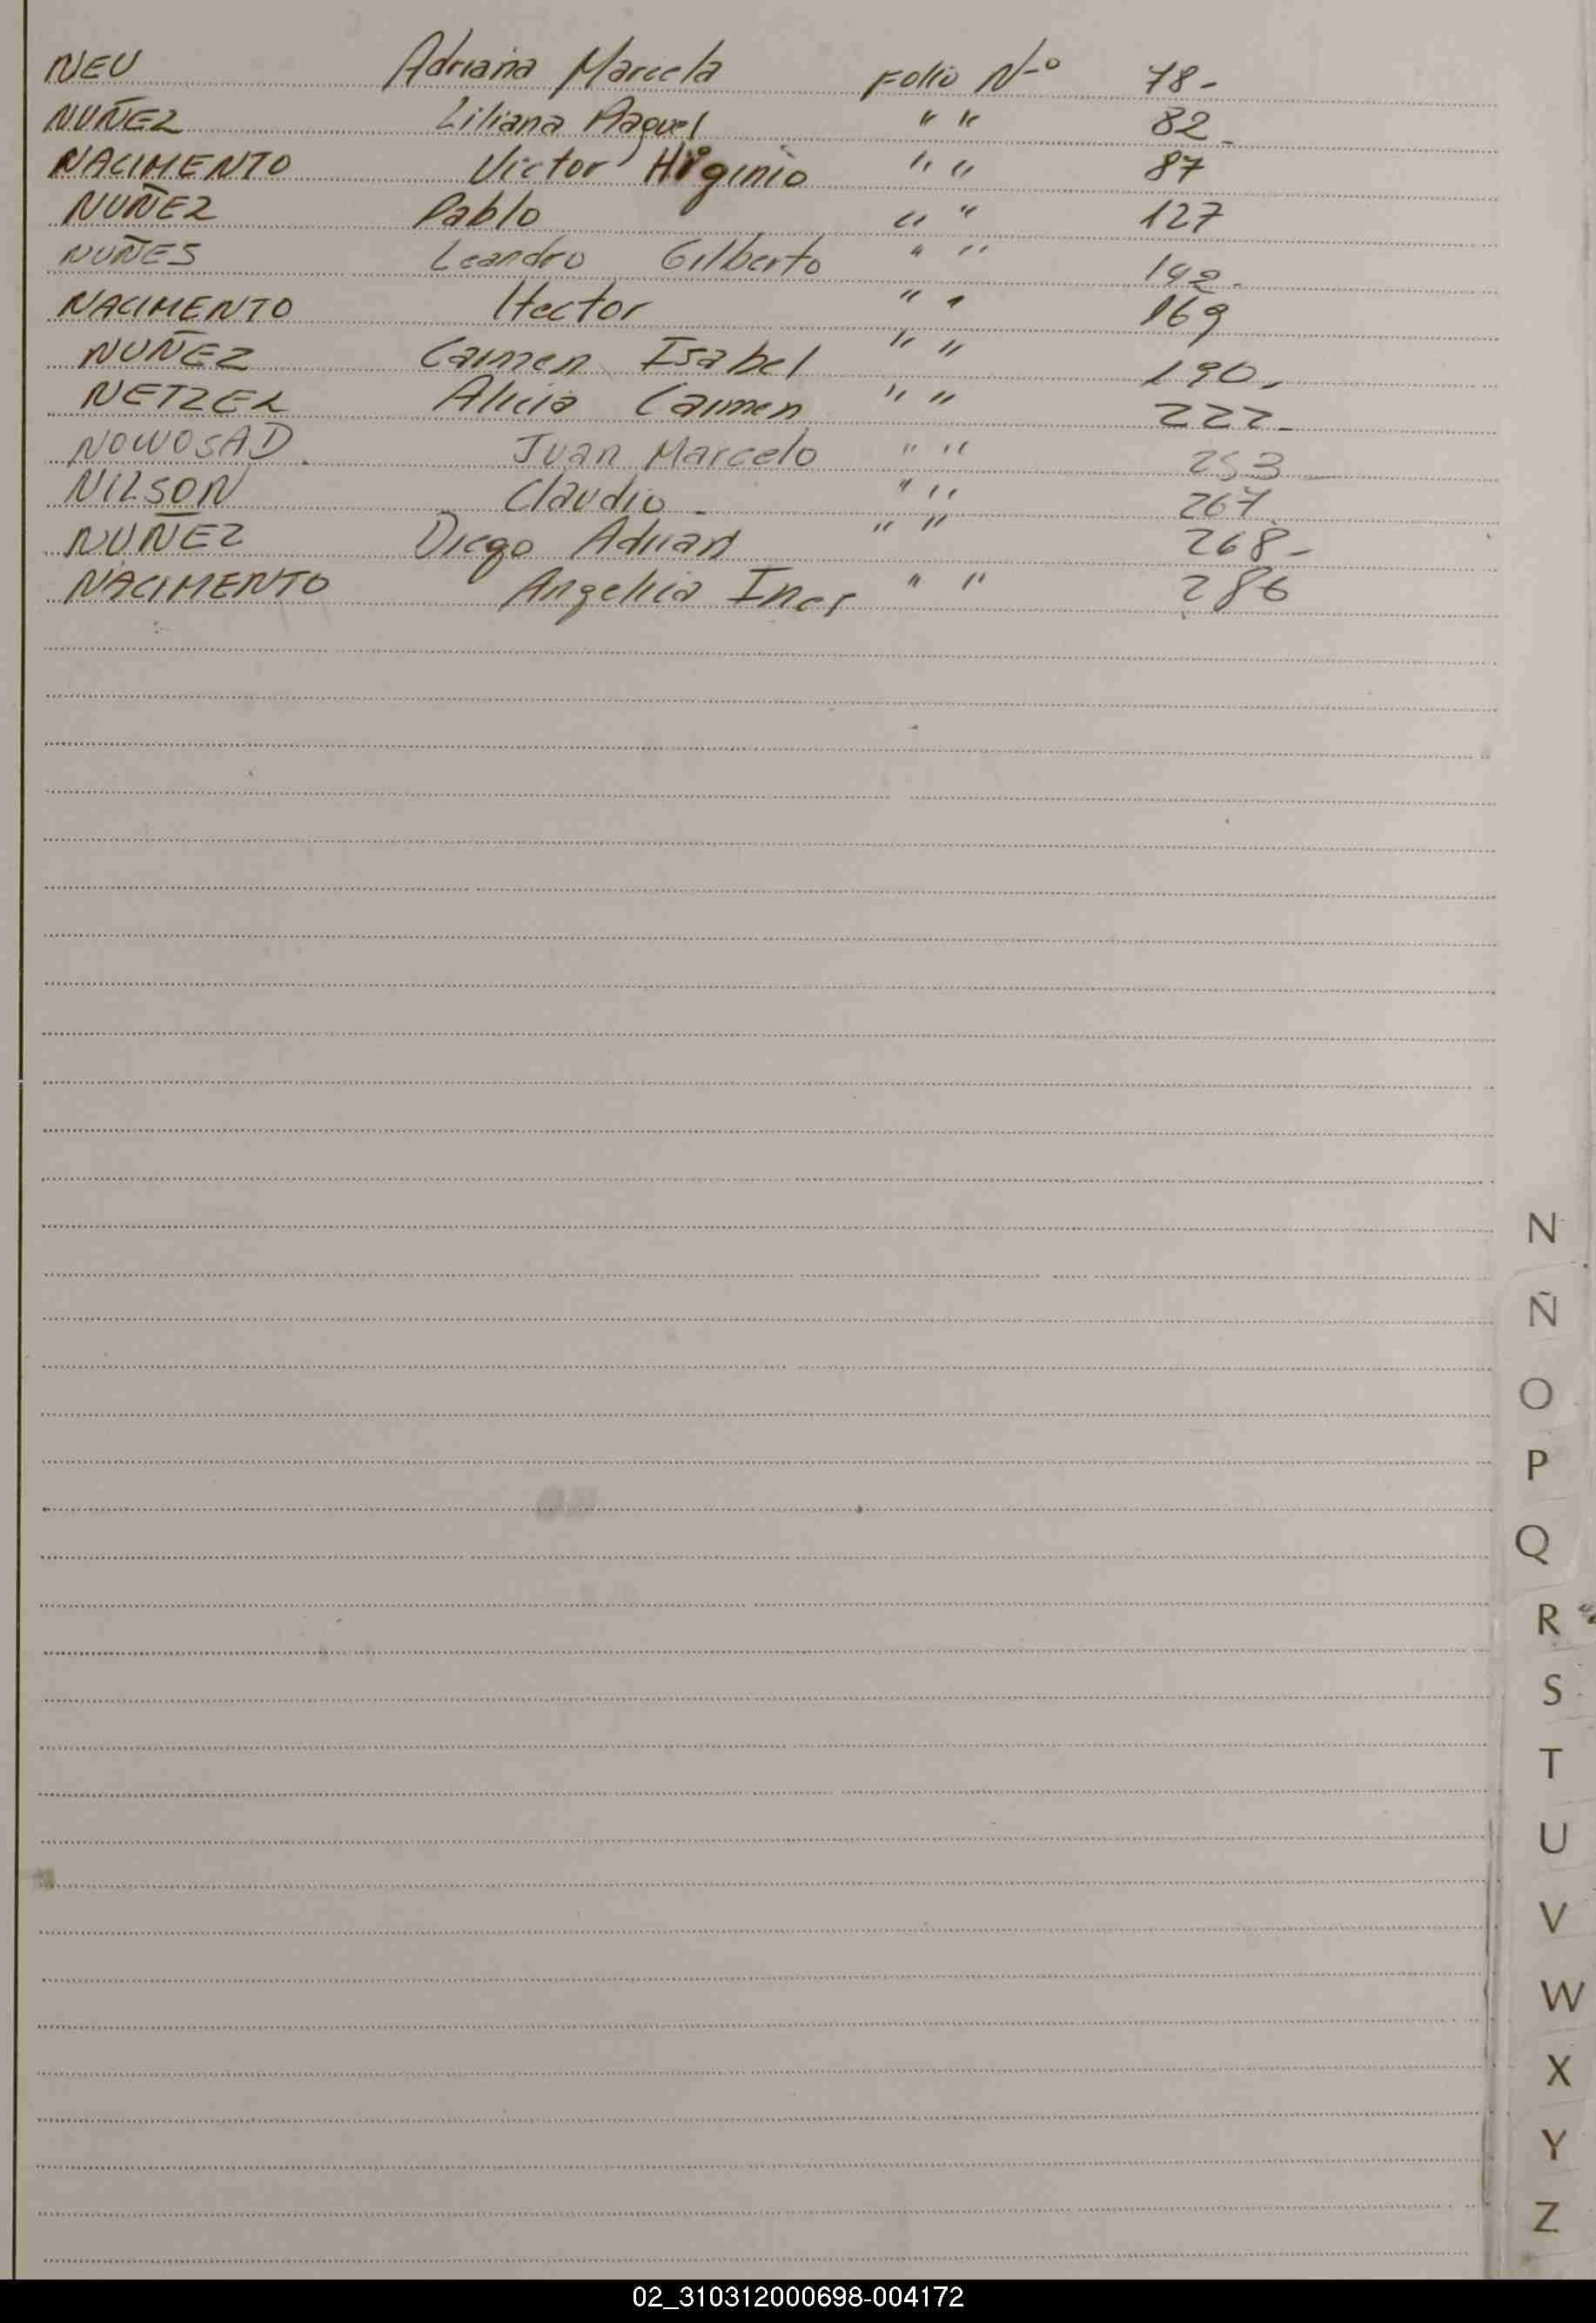 NEU Adriana Marcela Folio N-º 78-
NUÑEZ Liliana Raquel " " 82-
NACIMENTO Victor Higinio " " 87
NUÑEZ Pablo " " 127
NUÑES Leandro Gilberto " " 142-
NACIMENTO Hector " " 169
NUÑEZ Carmen Isabel " " 190-
NETZEL Alicia Carmen " " 222-
NOWOSAD. Juan Marcelo " " 253-
NILSON Claudio - " " 267
NUÑEZ Diego Adrian " " 268-
NACIMENTO Angelica Ines " " 286
N
Ñ
O
P
Q
R
S
T
U
V
W
X
Y
Z
02_310312000698-004172